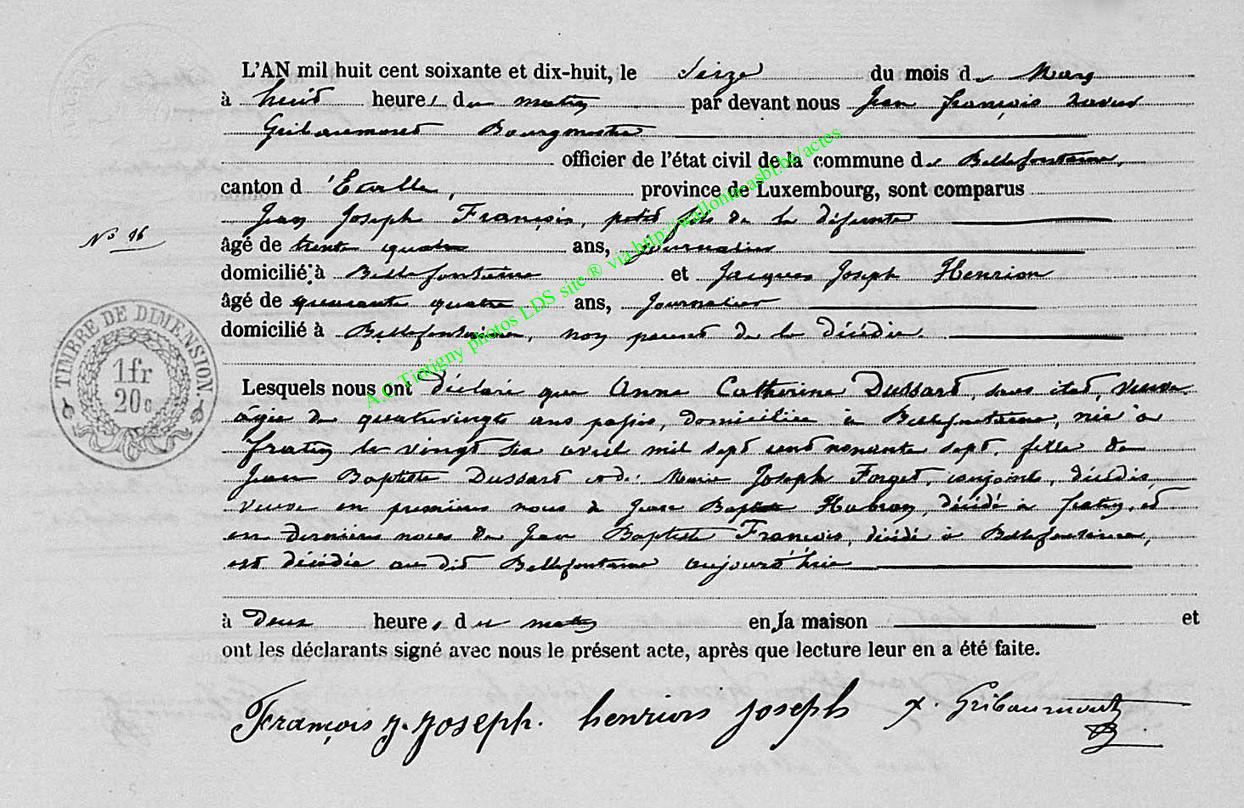 L'AN mil huit cent soixante et dix-huit, le Seize du mois de Mars
à huit heures du matin par devant nous Jean françois xavier
Gribaumont Bourgmestre
officier de l'état civil de la commune de Bellefontaine,
canton d'Etalle, province de Luxembourg, sont comparus
Jean Joseph François, petit fils de la défunte
N° 16
âgé de trente quatre ans, journalier
domicilié à Bellefontaine et Jacques Joseph Henrion
âgé de quarante quatre ans, journalier
domicilié à Bellefontaine, non parent de la décédée.
TIMBRE DE DIMENSION.
1fr
20c
Lesquels nous ont déclaré que Anne Catherine Dussart, sans état, veuve
agée de quatrevingts ans passés, domiciliée à Bellefontaine, née à
fratin le vingt six avril mil sept cent nonante sept, fille de
Jean Baptiste Dussart et de Marie Joseph Forget, conjoints, décédés,
veuve en premières noces de Jean Baptiste, décédé à fratin, et
en dernières noces de Jean Baptiste François, décédé à Bellefontaine,
est décédée au dit Bellefontaine aujourd'hui
à deux heures du matin en la maison et
ont les déclarants signé avec nous le présent acte, après que lecture leur en a été faite.
François J. Joseph. henrion joseph x. Gribaumont
Tintigny photos LDS site ® via http://wallonia-asbl.be/actes